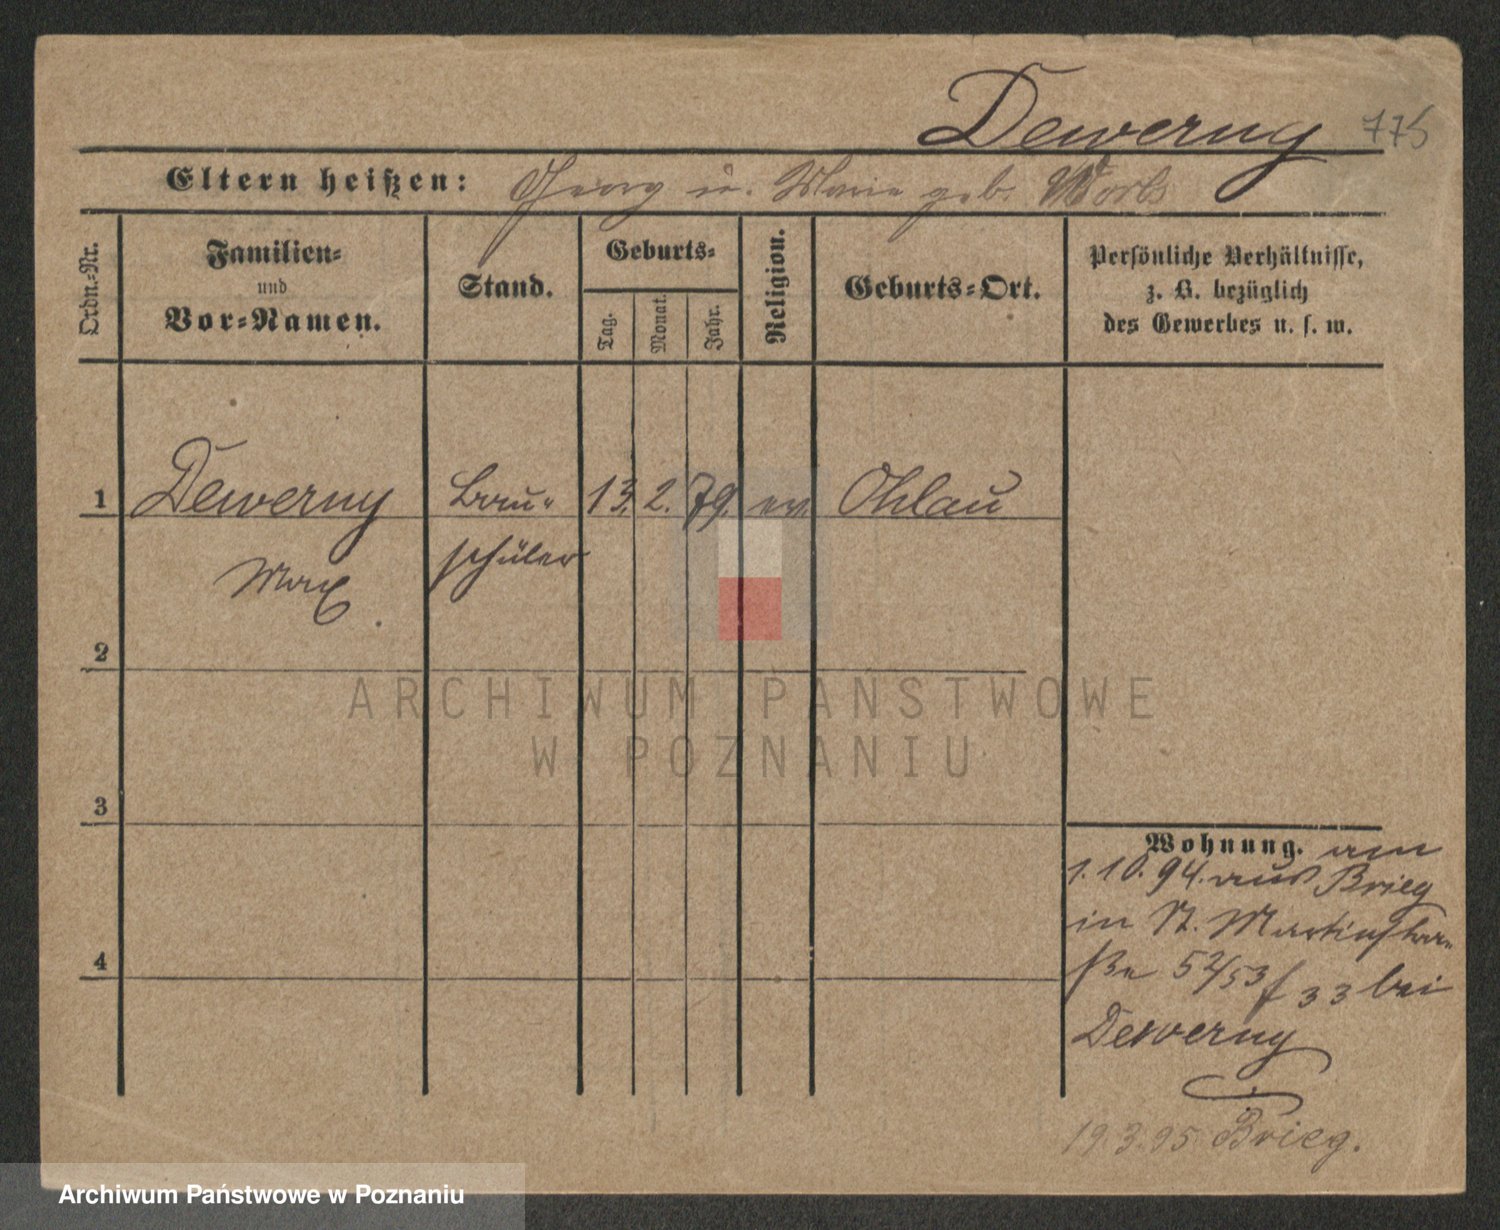 Dewerny 775
Eltern heißen: Georg u. Marie geb. Worbs
Ordn.-Nr.
Familien-
und
Vor-Namen.
Stand.
Geburts-
Tag.
Monat.
Jahr.
Religion.
Geburts-Ort.
Persönliche Verhältnisse,
z. B. bezüglich
des Gewerbes u. s. w.
1 Dewerny Bau- 13. 2. 79. ev. Ohlau
Max schüler
2
3
4
Wohnung. am
1.10.94. aus Brieg
in St. Martinstra-
ße 52/53 f 33 bei
Dewerny
19.3.95. Brieg.
ARCHIWUM PAŃSTWOWE
W POZNANIU
Archiwum Państwowe w Poznaniu